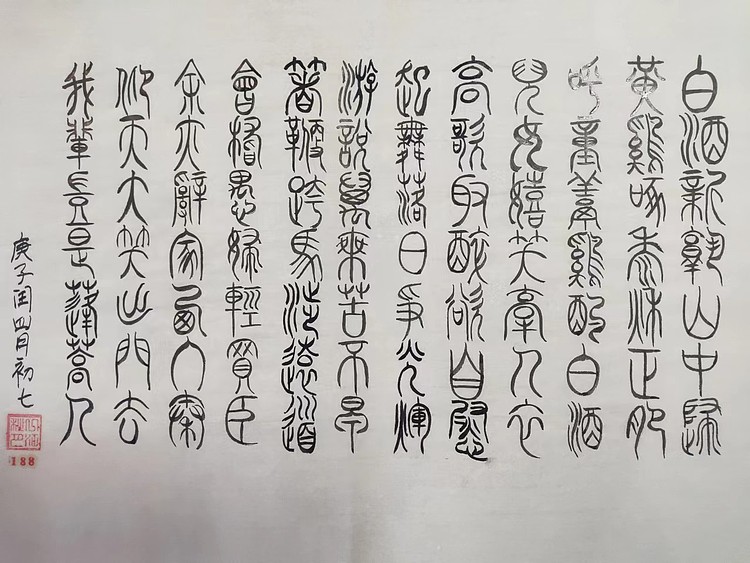 白酒新孰山中歸
黃雞啄黍秌正肥
呼童烹雞酌白酒
兒女嬉笑牽人衣
高歌取醉欲自慰
起舞落日爭光輝
游說萬乘苦不早
著鞭跨馬涉遠道
會稽愚婦輕買臣
余亦辭家西入秦
仰天大笑出門去
我輩豈是蓬蒿人
庚子閏四月初七
188